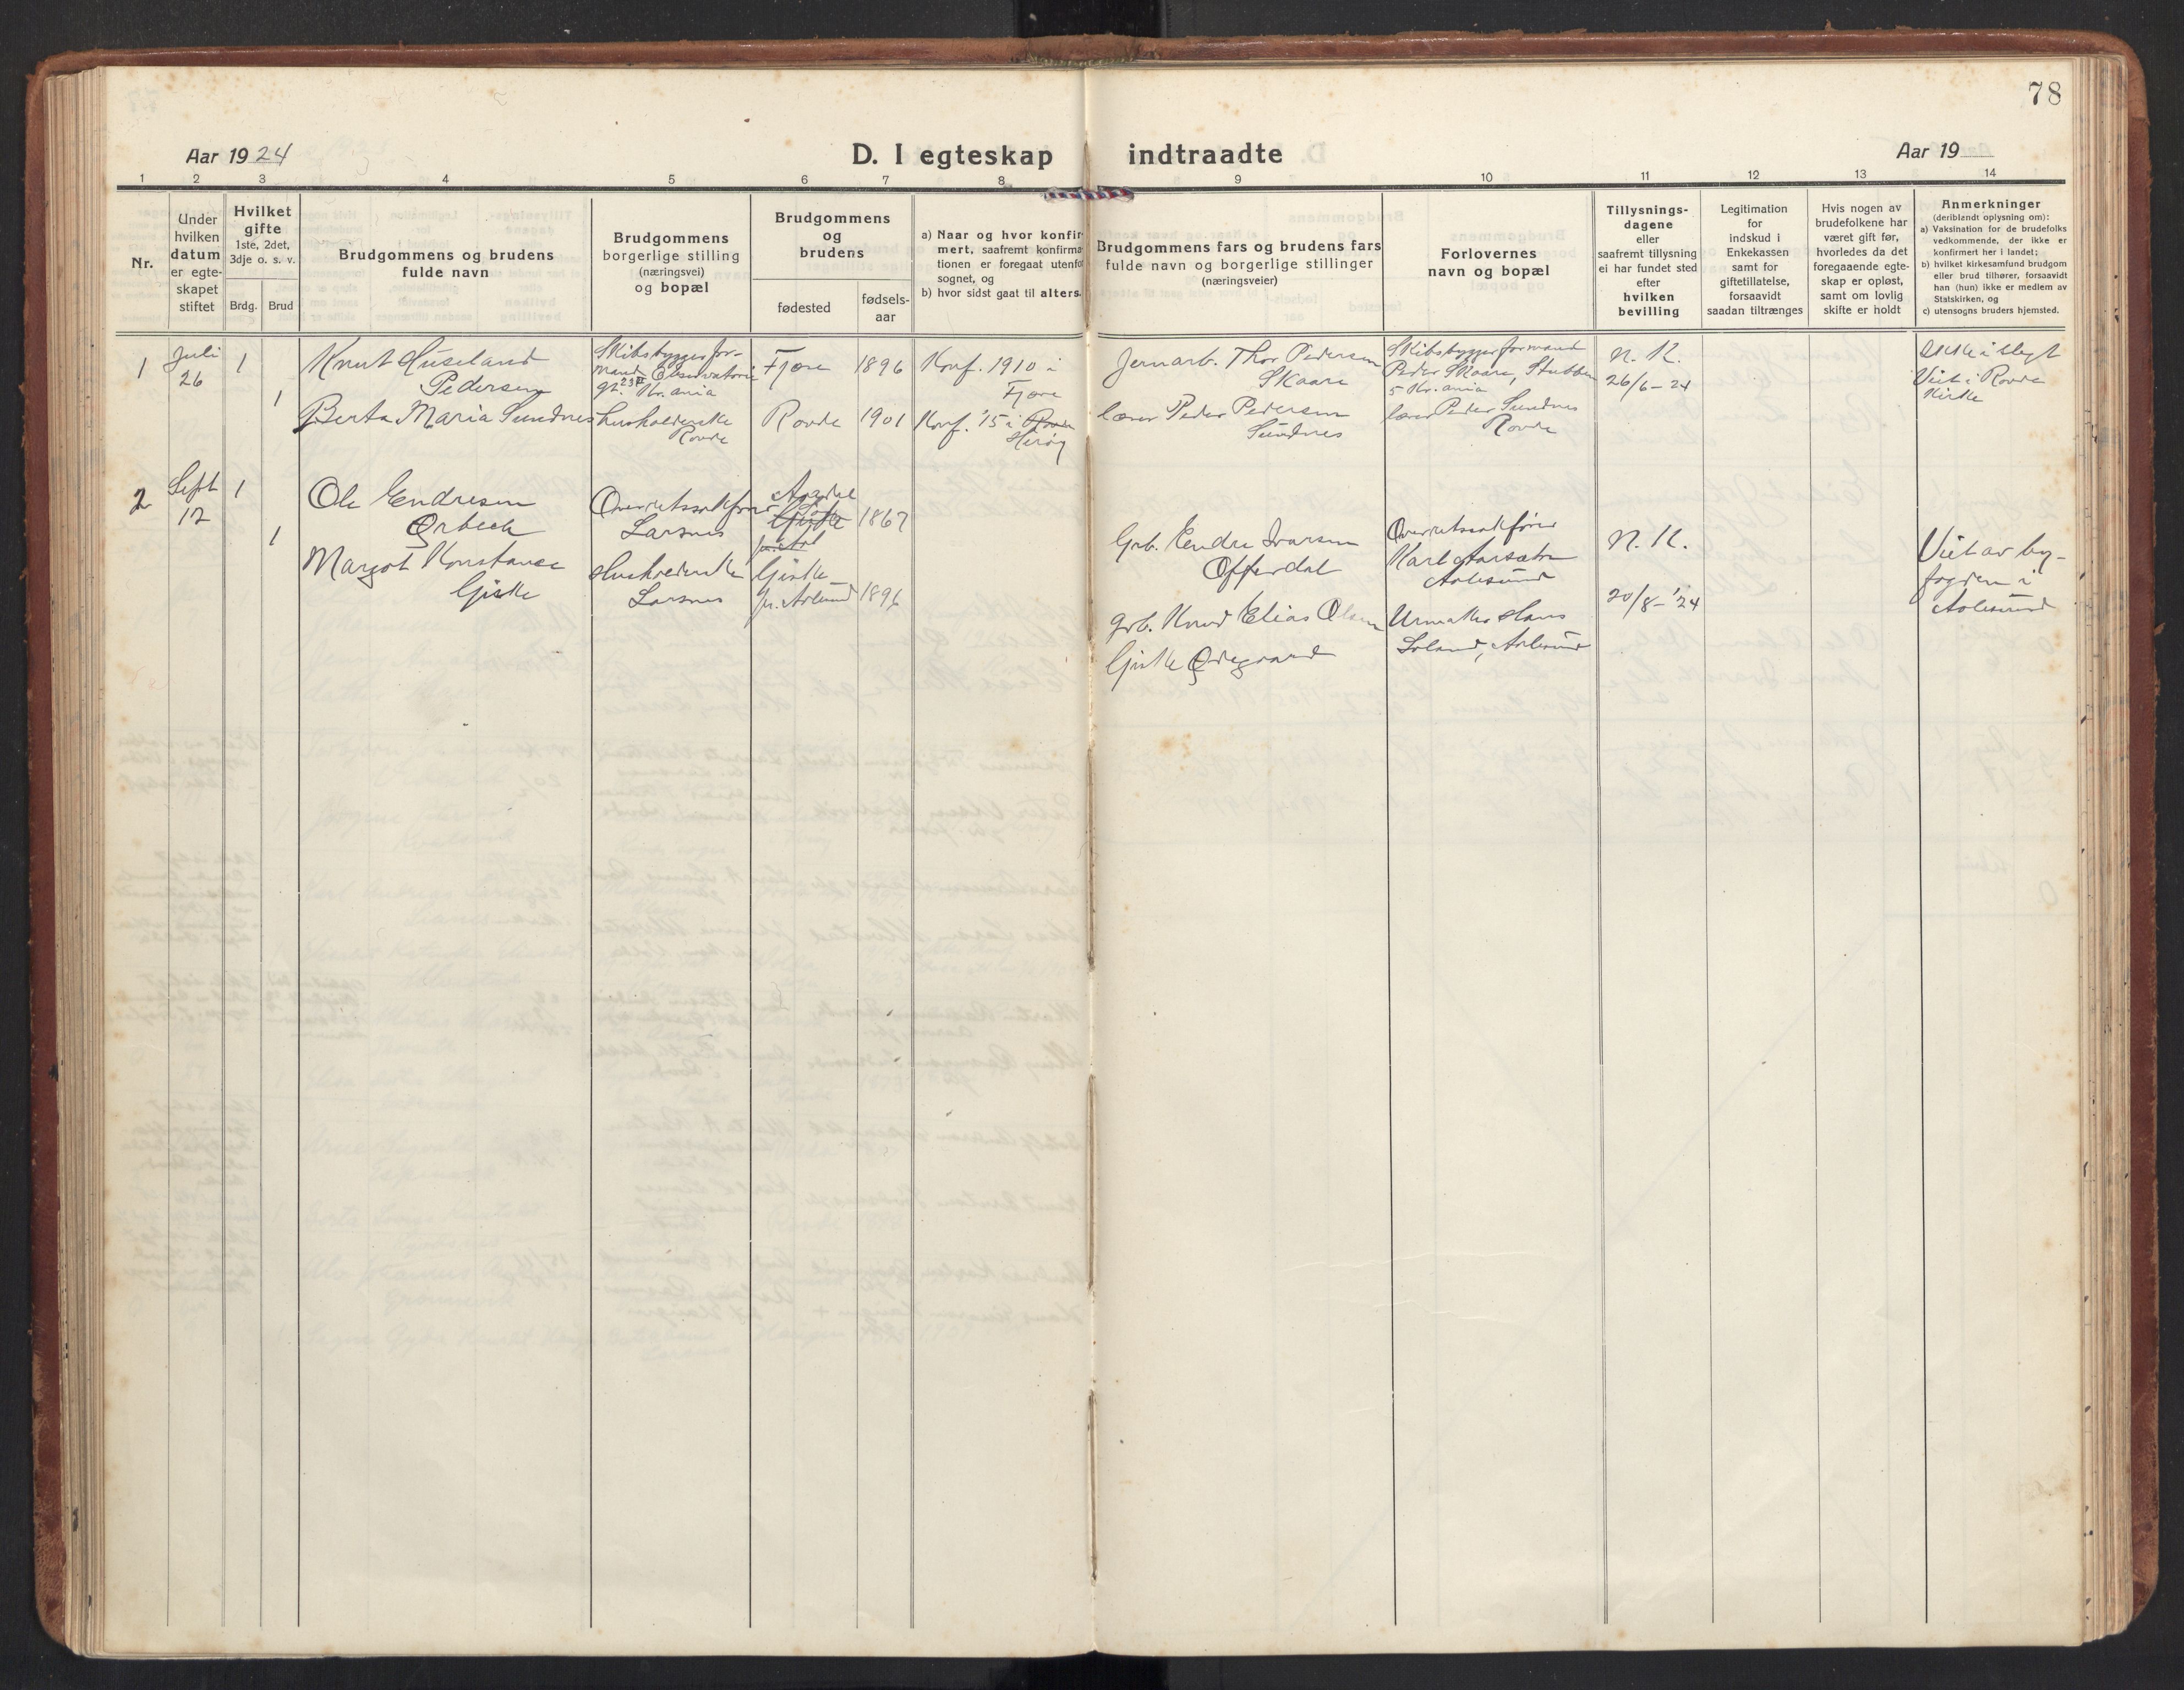 78
Aar 1924
D. I egteskap indtraadte
Aar 19
1 2 3 4 5 6 7 8 9 10 11 12 13 14
Nr.
Under
hvilken
datum
er egte-
skapet
stiftet
Hvilket
gifte
1ste, 2det,
3dje o. s. v.
Brdg. Brud
Brudgommens og brudens
fulde navn
Brudgommens
borgerlige stilling
(næringsvei)
og bopæl
Brudgommens
og
brudens
fødested
fødsels-
aar
a) Naar og hvor konfir
mert, saafremt konfirma
tionen er foregaat utenfo
sognet, og
b) hvor sidst gaat til alters.
Brudgommens fars og brudens fars
fulde navn og borgerlige stillinger
(næringsveier)
Forlovernes
navn og bopæl
Tillysnings-
dagene
eller
saafremt tillysning
ei har fundet sted
efter
hvilken
bevilling
Legitimation
for
indskud i
Enkekassen
samt for
giftetillatelse,
forsaavidt
saadan tiltrænges
Hvis nogen av
brudefolkene har
været gift før,
hvorledes da det
foregaaende egte-
skap er opløst,
samt om lovlig
skifte er holdt
Anmerkninger
(deriblandt oplysning om):
a) Vaksination for de brudefolks
vedkommende, der ikke er
konfirmert her i landet;
b) hvilket kirkesamfund brudgom
eller brud tilhører, forsaavidt
han (hun) ikke er medlem av
Statskirken, og
c) utensogns bruders hjemsted.
1
Juli
26
1
Knut Huseland
Pedersen
Skibsbyggerfor-
mand Observatorie
gt. 23 II Kr.ania
Fjære
1896
Konf. 1910 i
Fjære
Jernarb. Thor Pedersen
Skaare
Skibsbyggerformand
Peder Skaare, Stubben
5 Kr.ania
N. K.
26/6-24
Ikke i slegt
Viet i Rovde
Kirke
1
Berta Maria Sundnes
husholderske
Rovde
Rovde
1901
Konf. '15 i Rovde
Herøy
lærer Peder Pedersen
Sundnes
lærer Peder Sundnes
Rovde
2
Sept
12
1
Ole Endresen
Ørbech
Overretssakfører
Larsnes
Aardal
Giske
1867
Grb. Endre Ivarsen
Offerdal
Overretssakfører
Karl Aarsæther
Aalesund
N. K.
20/8-'24
Viet av by-
fogden i
Aalesund
1
Margot Konstance
Giske
Husholderske
Larsnes
Giske
pr. Aalesund
1896
grb. Knud Elias Olsen
Giske Ødegaard
Urmaker Hans
Aalesund